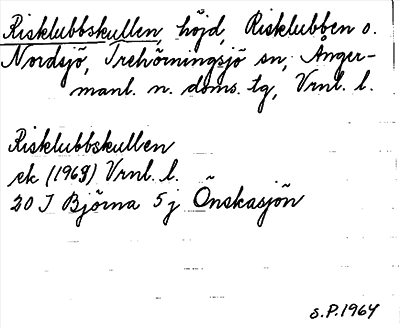 Risklubbskullen, höjd, Risklubben o.
Nordsjö, Trehörningsjö sn, Ånger-
manl. n. doms. tg, Vrnl. l.
Risklubbskullen
ek (1963) Vrnl. l.
20 J Björna 5 j Önskasjön
S.P. 1964